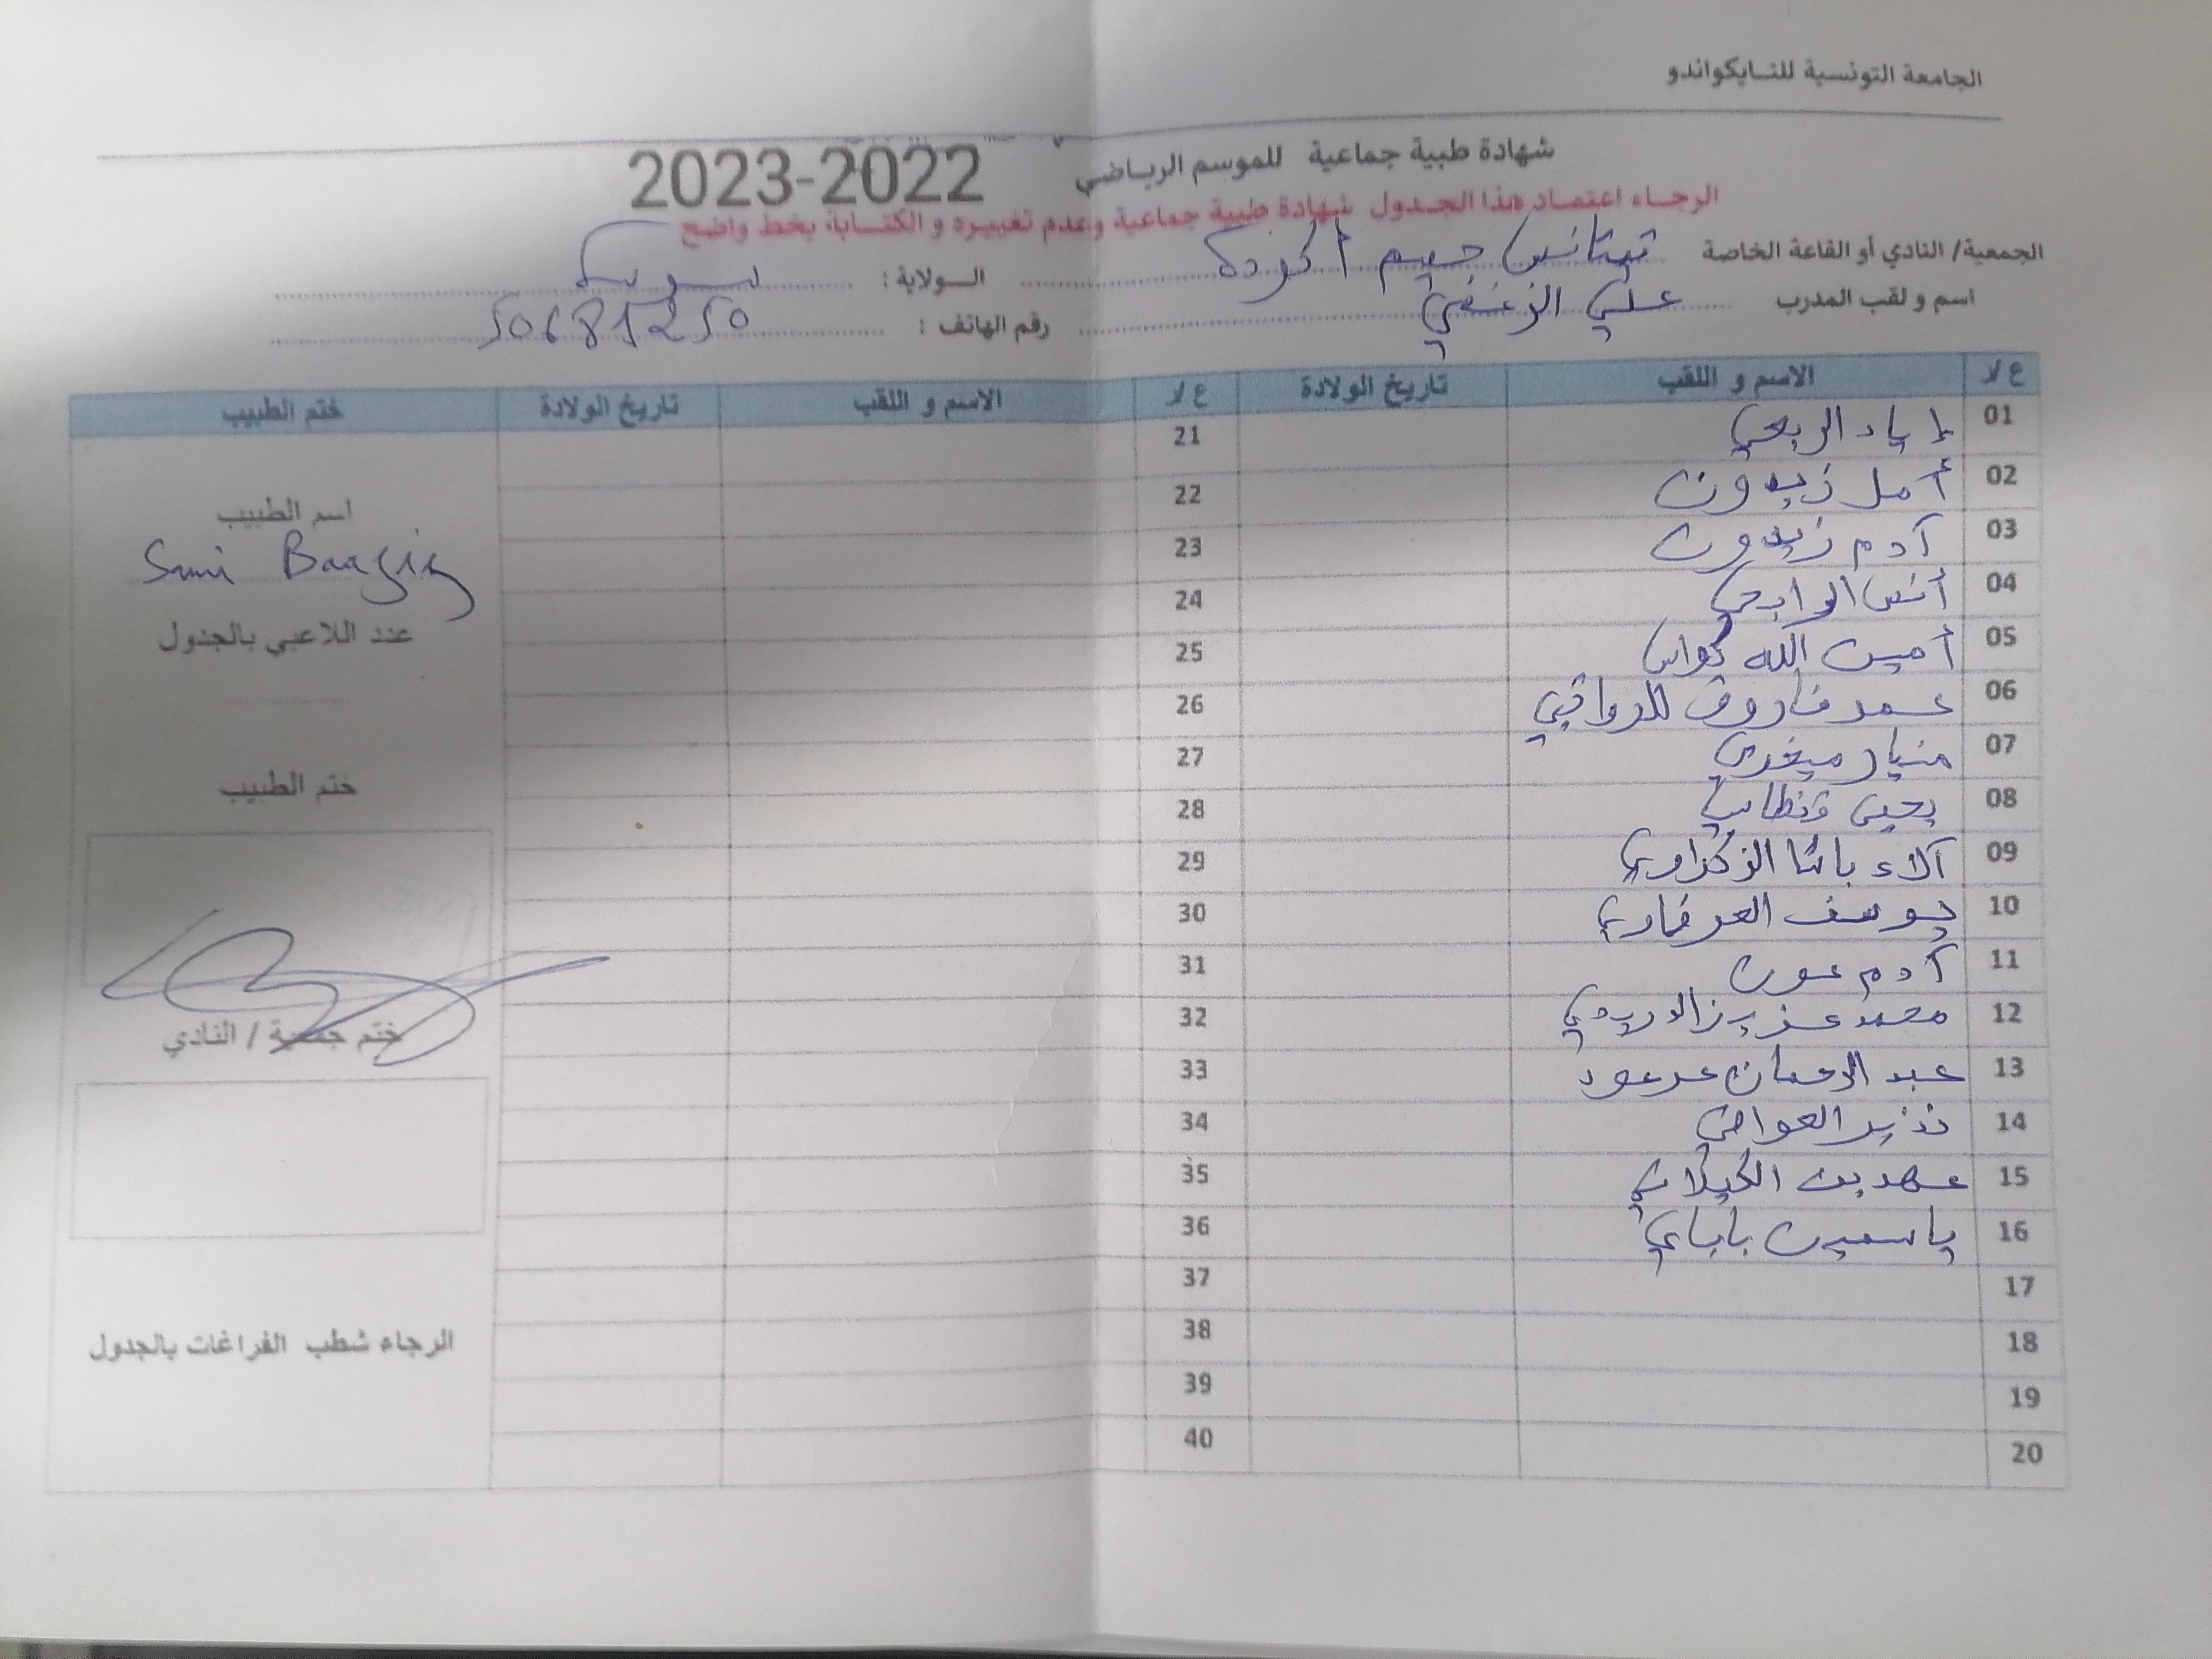 الجامعة التونسية للتايكواندو
شهادة طبية جماعية للموسم الرياضي 2023-2022
الرجاء اعتماد هذا الجدول شهادة طبية جماعية وعدم تغييره و الكتابة بخط واضح
الجمعية/ النادي أو القاعة الخاصة تيتانس جيم أكودة الولاية : سوسة
اسم و لقب المدرب علي الزغفي رقم الهاتف : 50681250
ع/د الاسم و اللقب تاريخ الولادة ع/د الاسم و اللقب تاريخ الولادة ختم الطبيب
01 إياد الربعي 21
02 أمل زيدون 22
اسم الطبيب
03 آدم زيدون 23
Sami Baaziz
04 أنس الرابحي 24
عدد اللاعبي بالجدول
05 أمين الله كواس 25
06 فاروق 26
07 27
ختم الطبيب
08 يحيى 28
09 آلاء باشا الزكراوي 29
10 يوسف 30
11 آدم عون 31
12 محمد عزيز الدريدي 32
ختم جمعية / النادي
13 عبد الرحمان 33
14 نذير 34
15 عهد بن الكيلاني 35
16 ياسمين باباي 36
17 37
18 38
الرجاء شطب الفراغات بالجدول
19 39
20 40